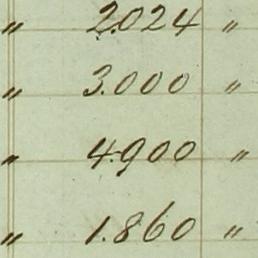 〃 2.024 〃
〃 3.000 〃
〃 4.900 〃
〃 1.860 〃